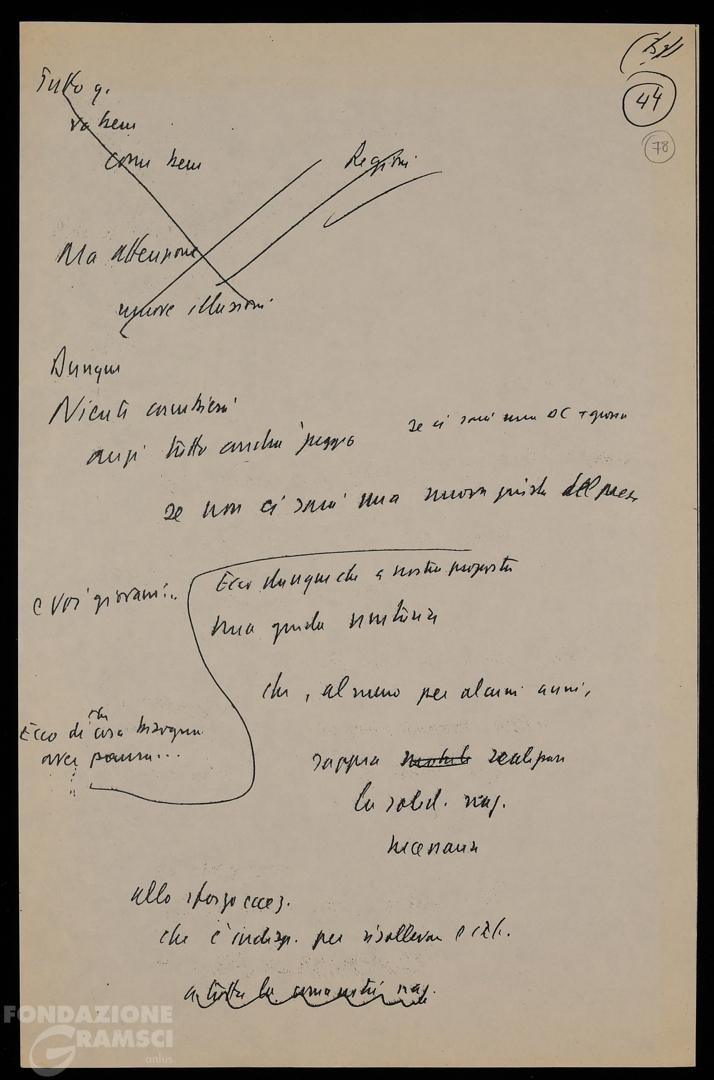 44
78
Tutto q.
va bene
come bene
Regioni
Ma attenzione
nuove illusioni
Dunque
Niente cambierà
anzi tutto andrà peggio
se ci sarà una DC + grossa
se non ci sarà una nuova guida del paese
e voi giovani...
Ecco dunque la nostra proposta
una guida unitaria
che, almeno per alcuni anni,
Ecco di che cosa bisogna
aver paura...
sappia realizzare
la solid. naz.
necessaria
allo sforzo eccez.
che è indisp. per risollevare l'It.
a tutta la comunità naz.
FONDAZIONE
GRAMSCI
onlus